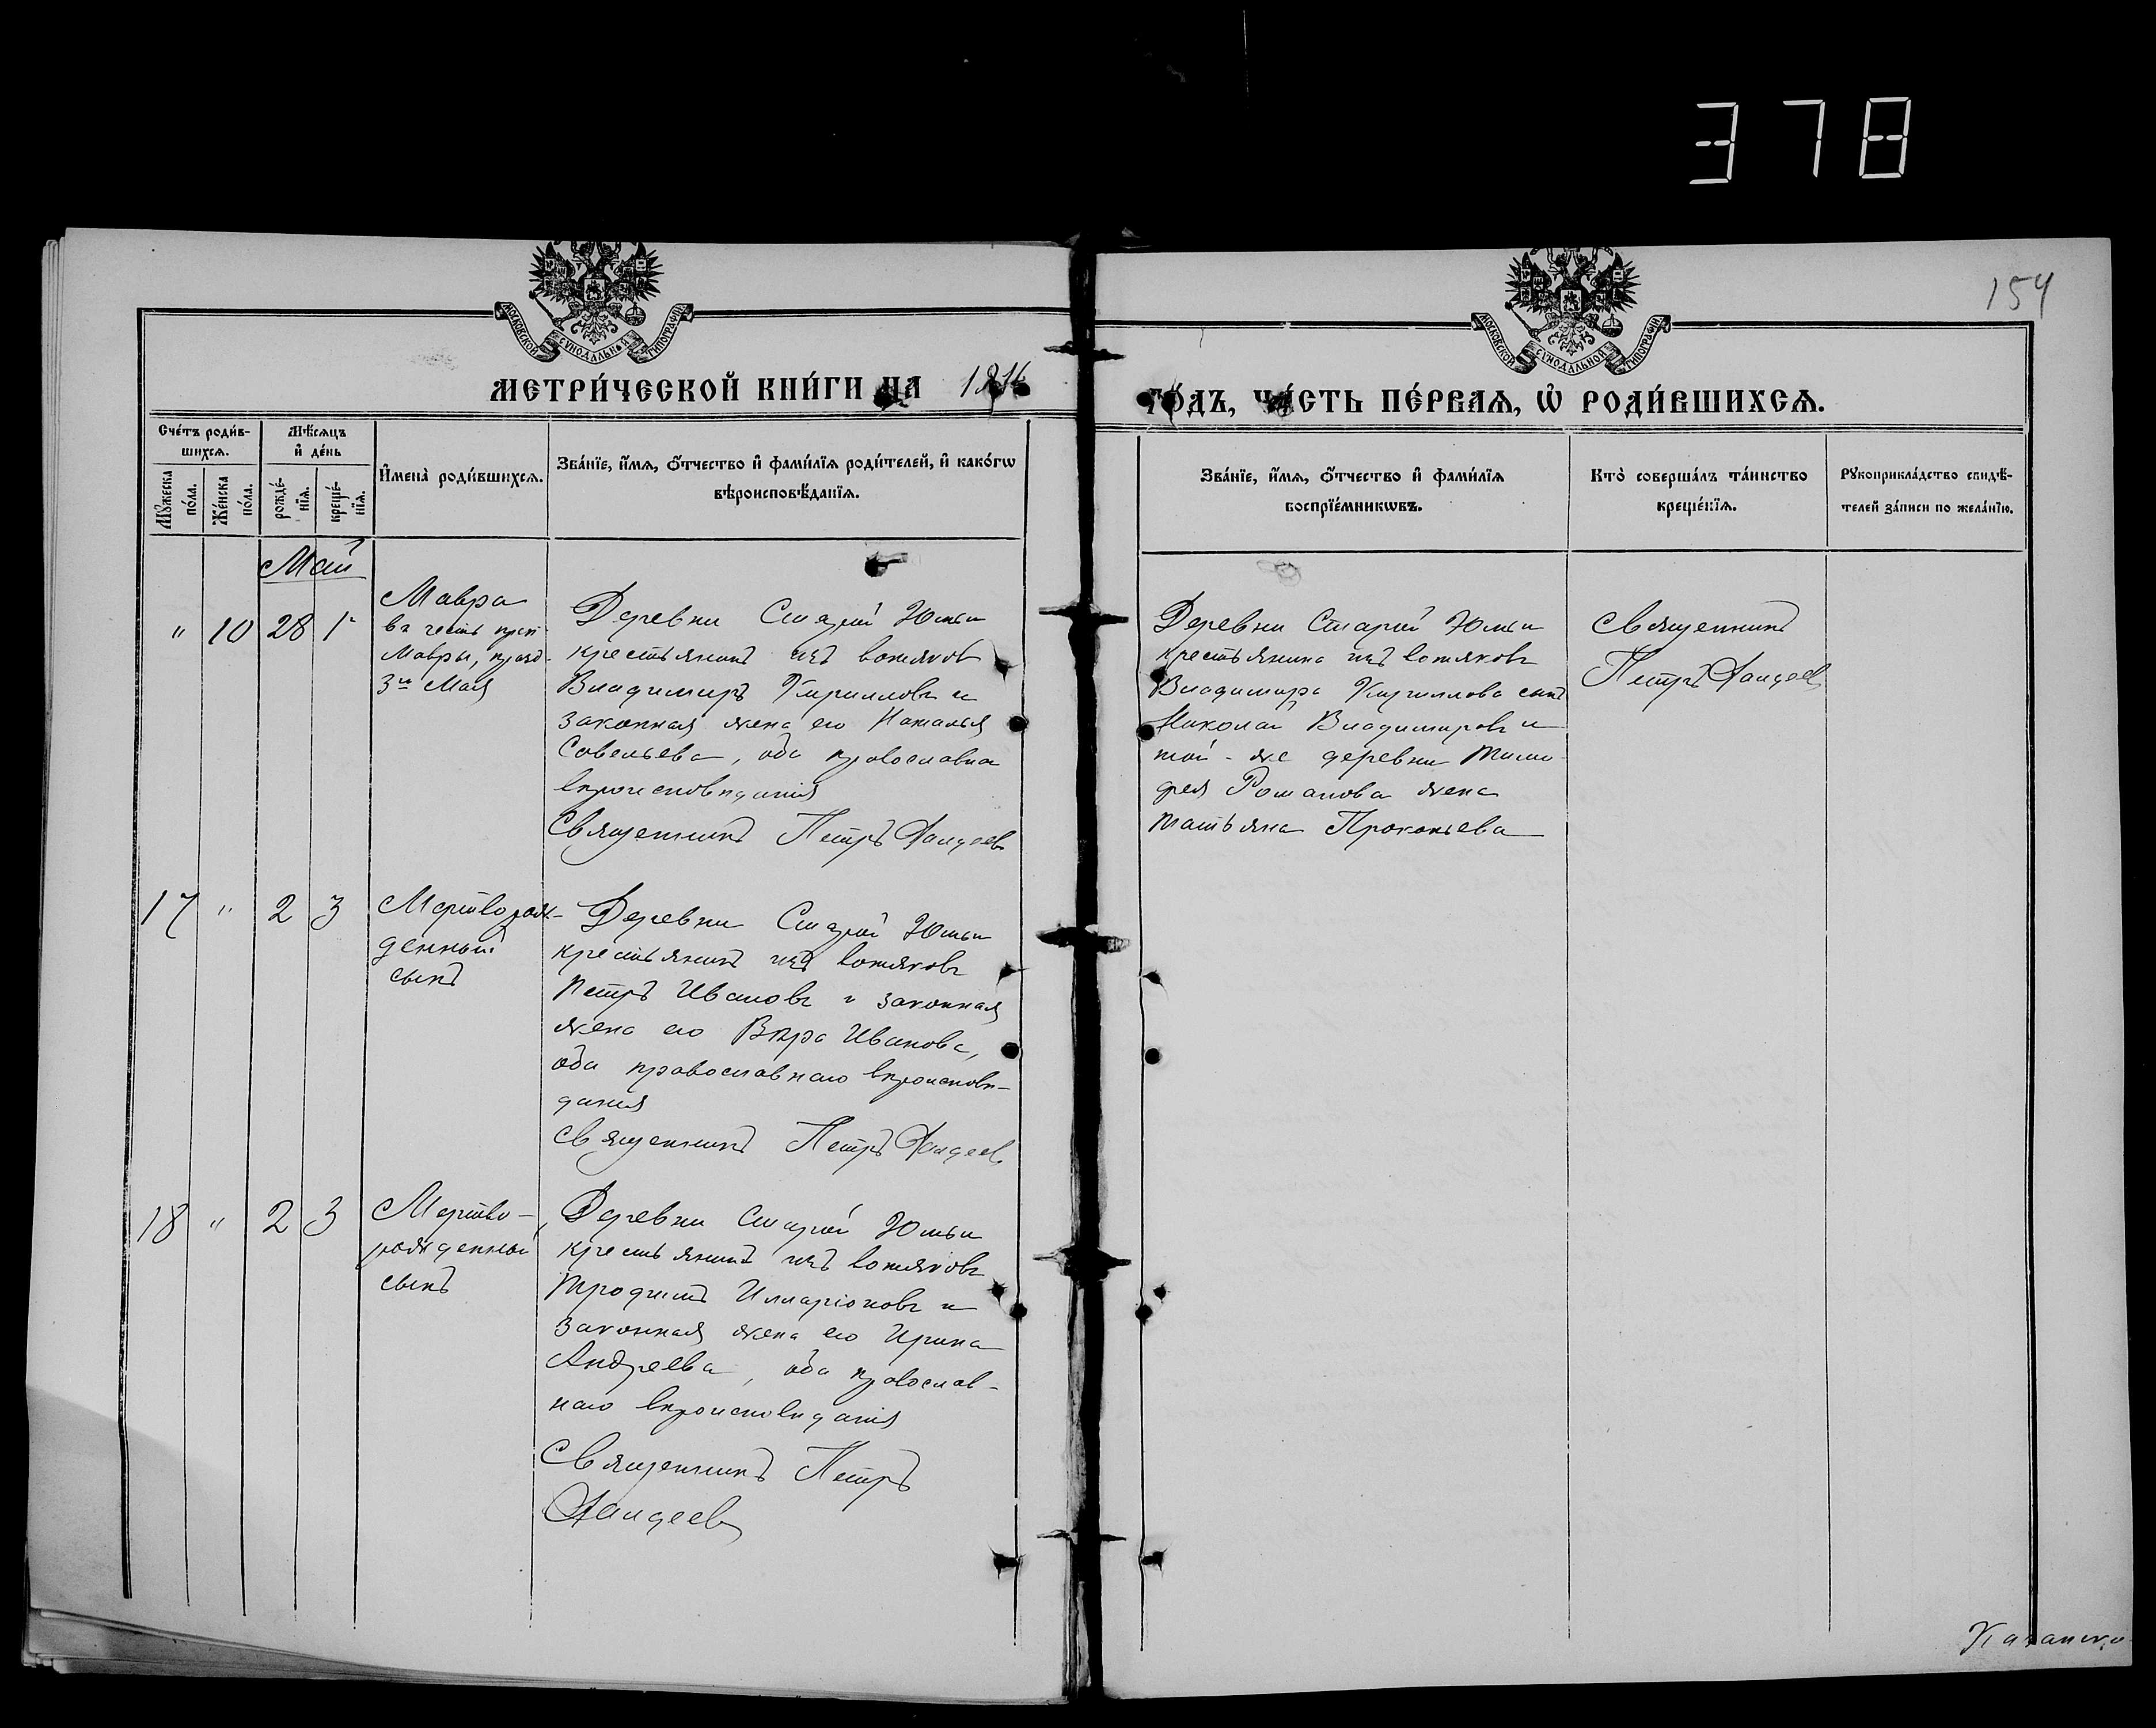 378
154
МОСКОВСКОЙ СУНОДАЛЬНОЙ ТИПОГРАФІИ
МОСКОВСКОЙ СУНОДАЛЬНОЙ ТИПОГРАФІИ
МЕТРИ́ЧЕСКОЙ КНИ́ГИ НА
ГО́ДЪ, ЧА́СТЬ ПЕ́РВАѦ, Ѡ҆ РОДИ́ВШИХСѦ.
Сче́тъ роди́в-
шихсѧ.
Мѣ́сѧцъ
и҆ де́нь
Мꙋ́жеска
по́ла.
Же́нска
по́ла.
рожде́-
нїѧ.
креще́-
нїѧ.
И҆мена̀ роди́вшихсѧ.
Зва́нїе, и҆́мѧ, ѻ҆́тчество и҆ фами́лїѧ роди́телей, и҆ како́гѡ
вѣроисповѣ́данїѧ.
Зва́нїе, и҆́мѧ, ѻ҆́тчество и҆ фами́лїѧ
воспрїе́мникѡвъ.
Кто̀ соверша́лъ та́инство
креще́нїѧ.
Рꙋкоприкла́дство свидѣ́-
телей за́писи по жела́нїю.
Май
" 10 28 1
Мавра
въ честь преп
Мавры, празд.
3го Мая
Деревни Старой Юмьи
крестьянинъ изъ вотяковъ
Владимиръ Кирилловъ и
законная жена его Наталья
Савельева, оба православна
вѣроисповѣданія
Священникъ Петръ
Деревни Старой Юмьи
крестьянина изъ вотяковъ
Владимира Кириллова сынъ
Николай Владимировъ и
той-же деревни Тимо
фея Романова жена
Татьяна Прокопьева
Священникъ
Петръ
17 " 2 3
Мертворож-
денный
сынъ
Деревни Старой Юмьи
крестьянинъ изъ вотяковъ
Петръ Ивановъ и законная
жена его Вѣра Иванова,
оба православнаго вѣроисповѣ-
данія
Священникъ Петръ
18 " 2 3
Мертво-
рожденный
сынъ
Деревни Старой Юмьи
крестьянинъ изъ вотяковъ
Трофимъ Илларіоновъ и
законная жена его Ирина
Андреева, оба православ-
наго вѣроисповѣданія
Священникъ Петръ